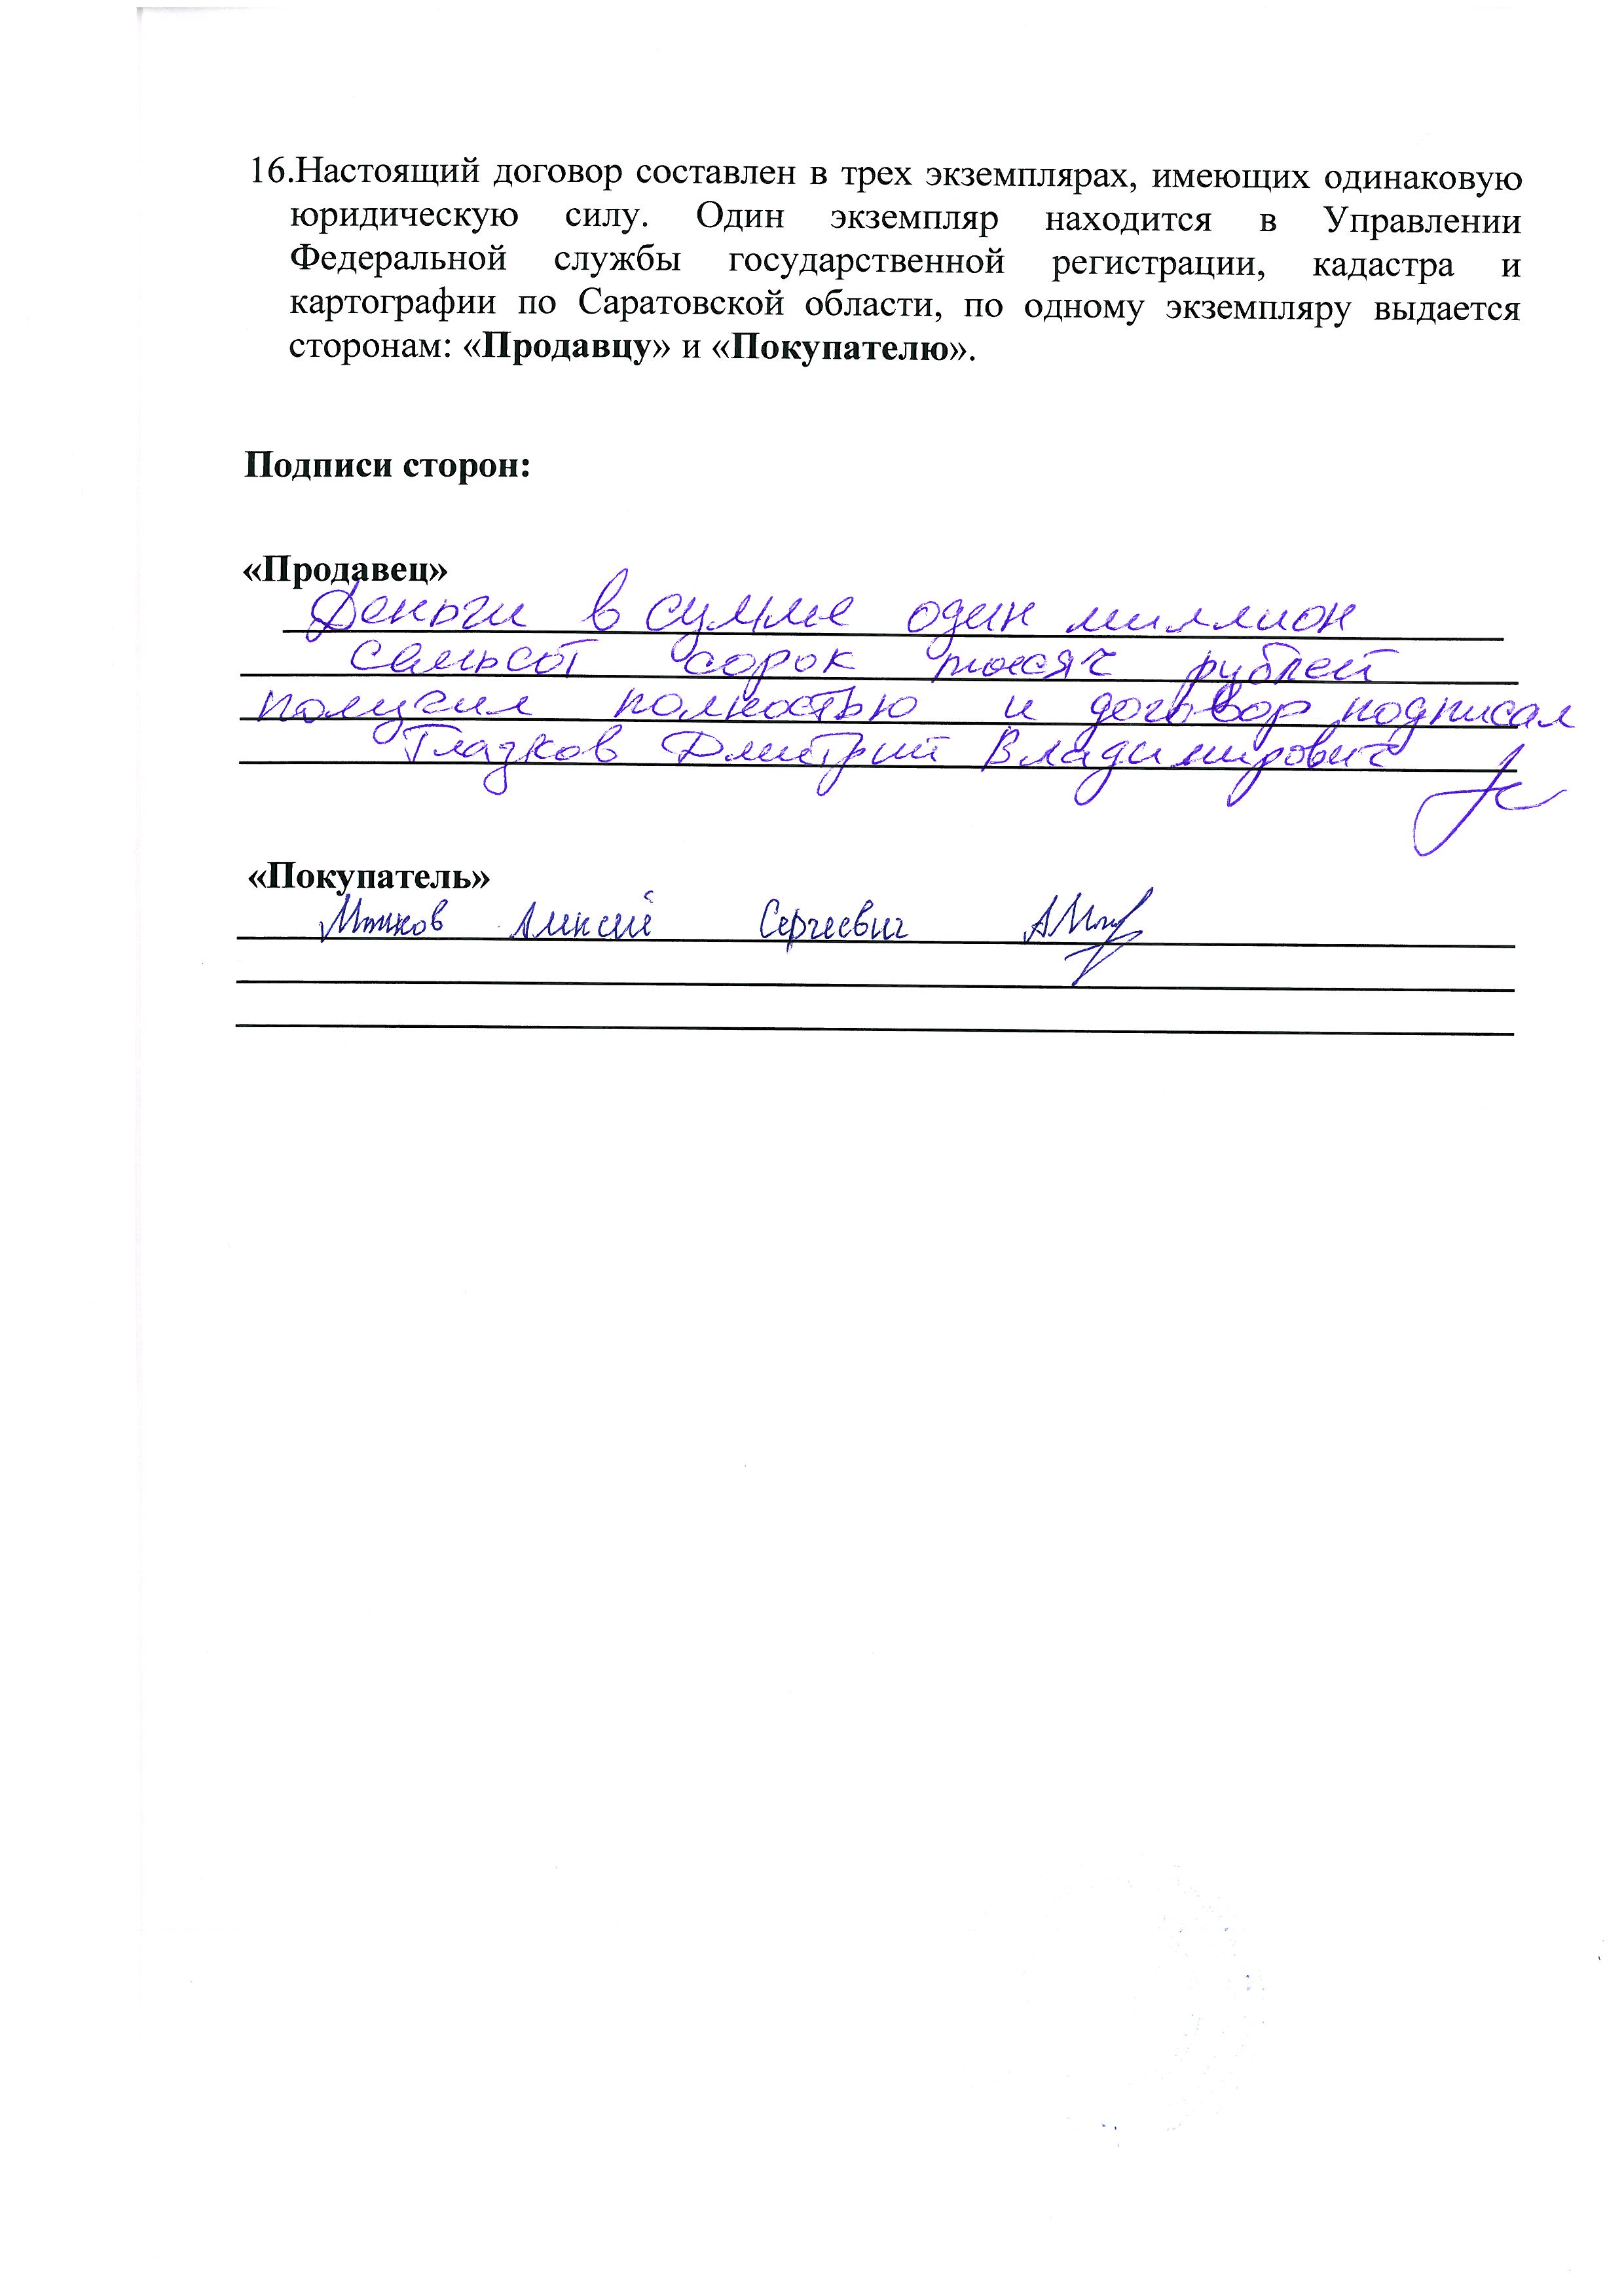 16.Настоящий договор составлен в трех экземплярах, имеющих одинаковую
юридическую силу. Один экземпляр находится в Управлении
Федеральной службы государственной регистрации, кадастра и
картографии по Саратовской области, по одному экземпляру выдается
сторонам: «Продавцу» и «Покупателю».
Подписи сторон:
«Продавец»
Деньги в сумме один миллион
семьсот сорок тысяч рублей
получил полностью и договор подписал
Глазков Дмитрий Владимирович
«Покупатель»
Алексей Сергеевич